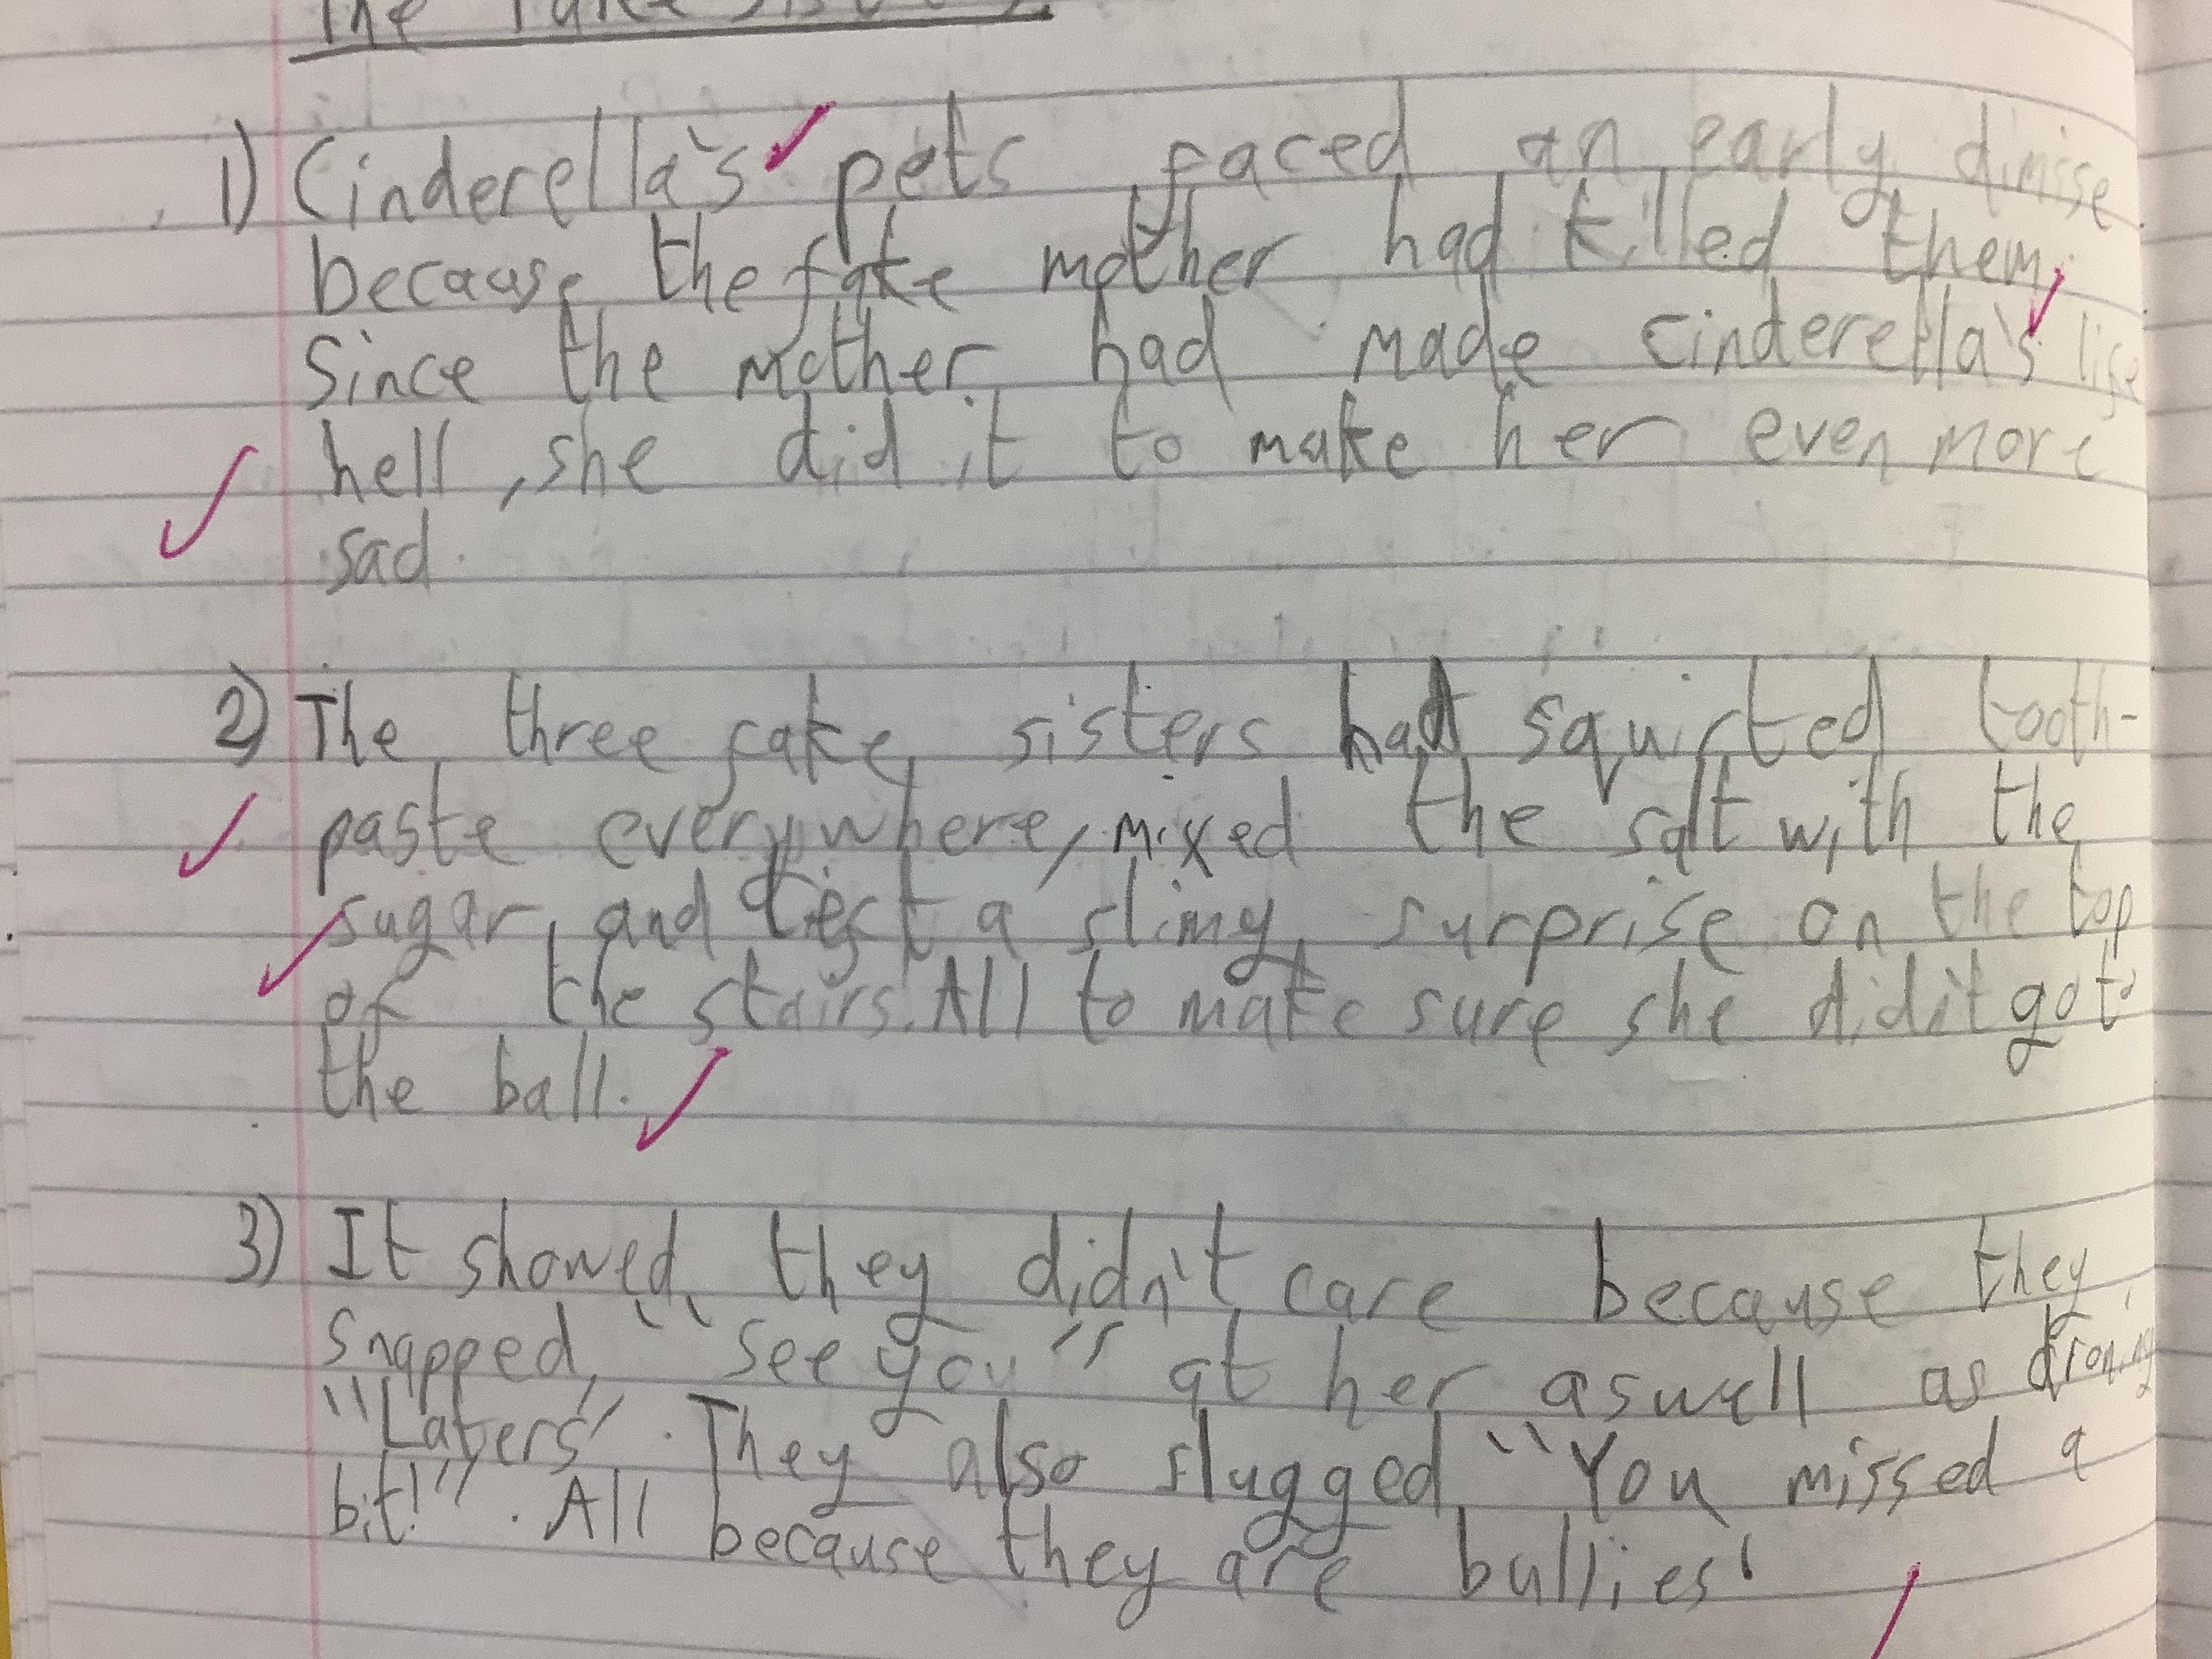 The Fake Sisters
1) Cinderella's pets faced an early dimisse
because the fake mother had killed them.
Since the mother had made Cinderella's life
hell, she did it to make her even more
sad.
2) The three fake sisters had squirted tooth-
paste everywhere, mixed the salt with the
sugar and left a slimy surprise on the top
of the stairs. All to make sure she didit go to
the ball.
3) It showed they didn't care because they
snapped, "see you" at her aswell as droning
"Laters". They also slugged "You missed a
bit!". All because they are bullies!